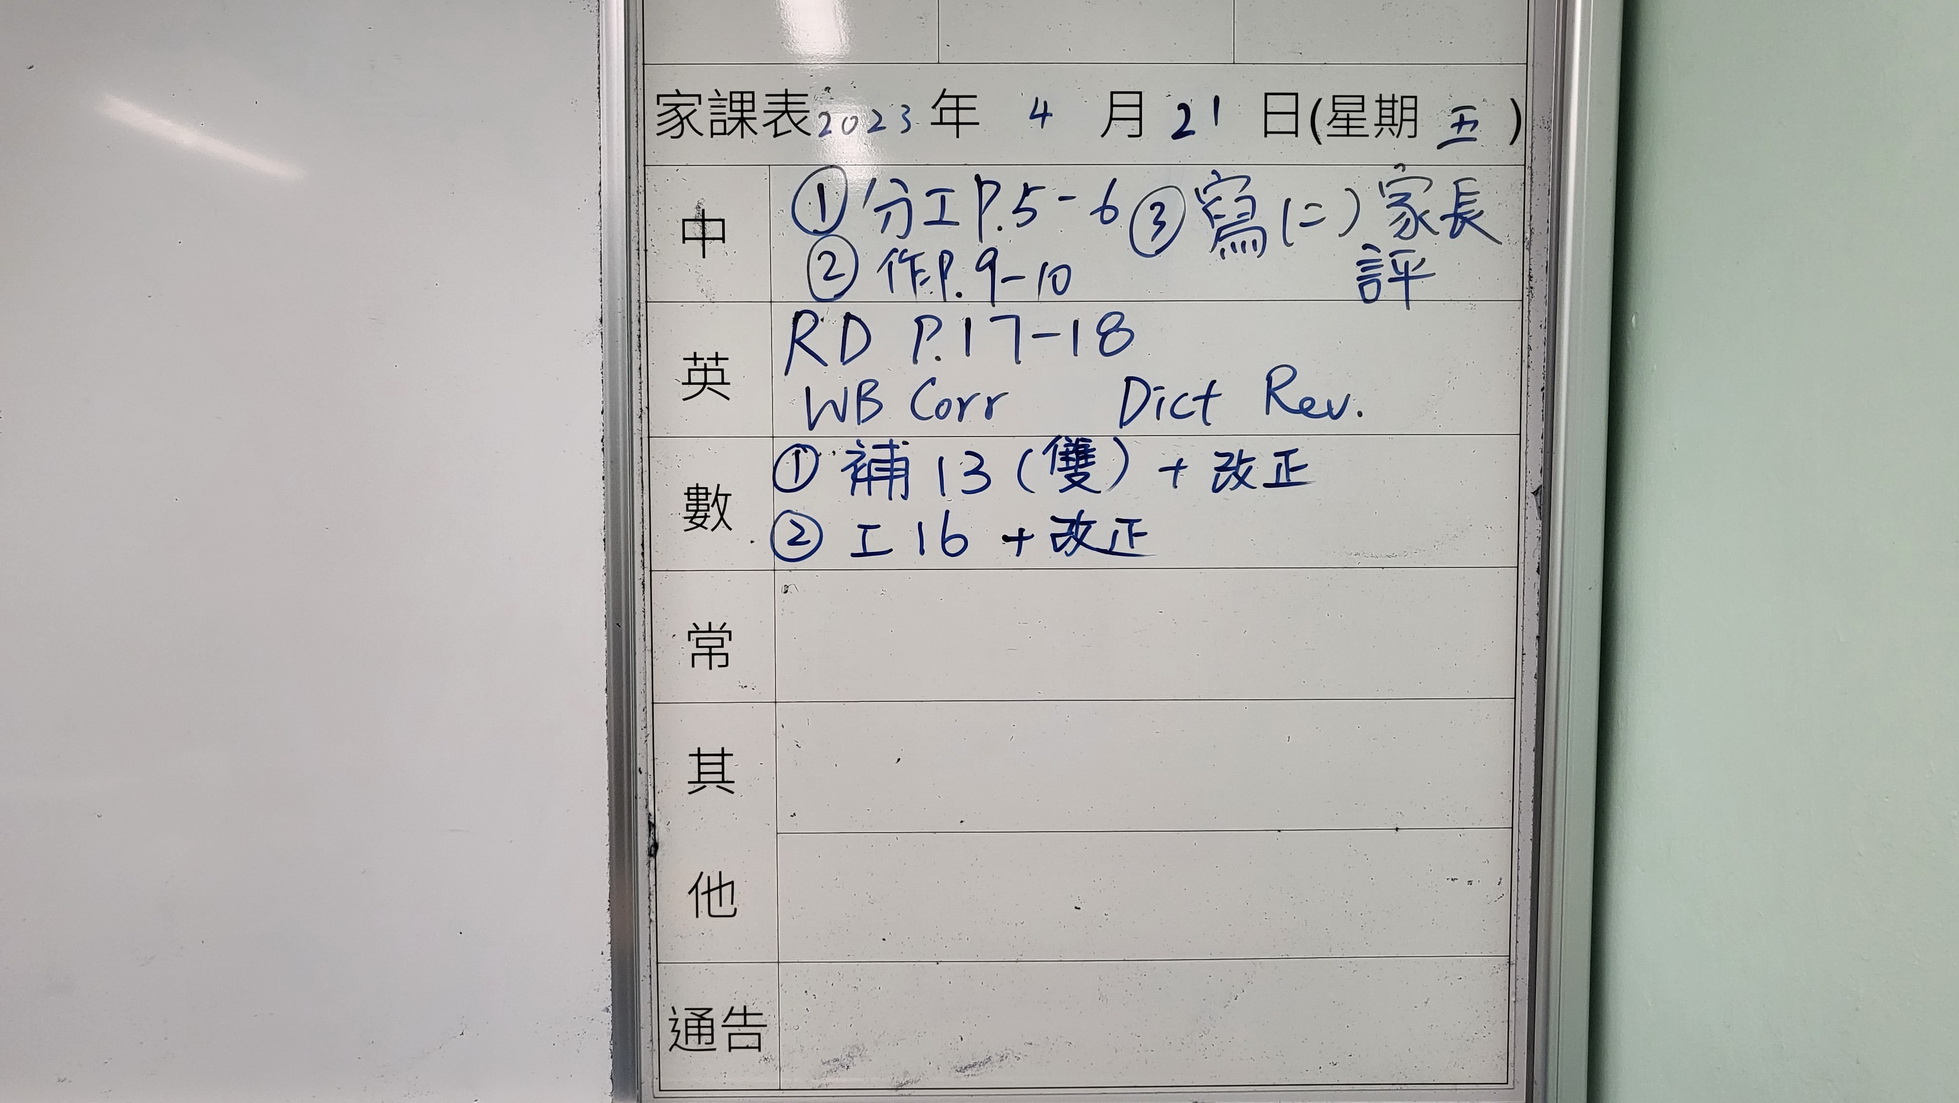 家課表 2023 年 4 月 21 日(星期 五)
中
① 分工 P.5-6 ③ 寫(二)家長
② 作P.9-10 評
英
RD P.17-18
WB Corr Dict Rev.
數
① 補 13 (雙) + 改正
② 工 16 + 改正
常
其
他
通告